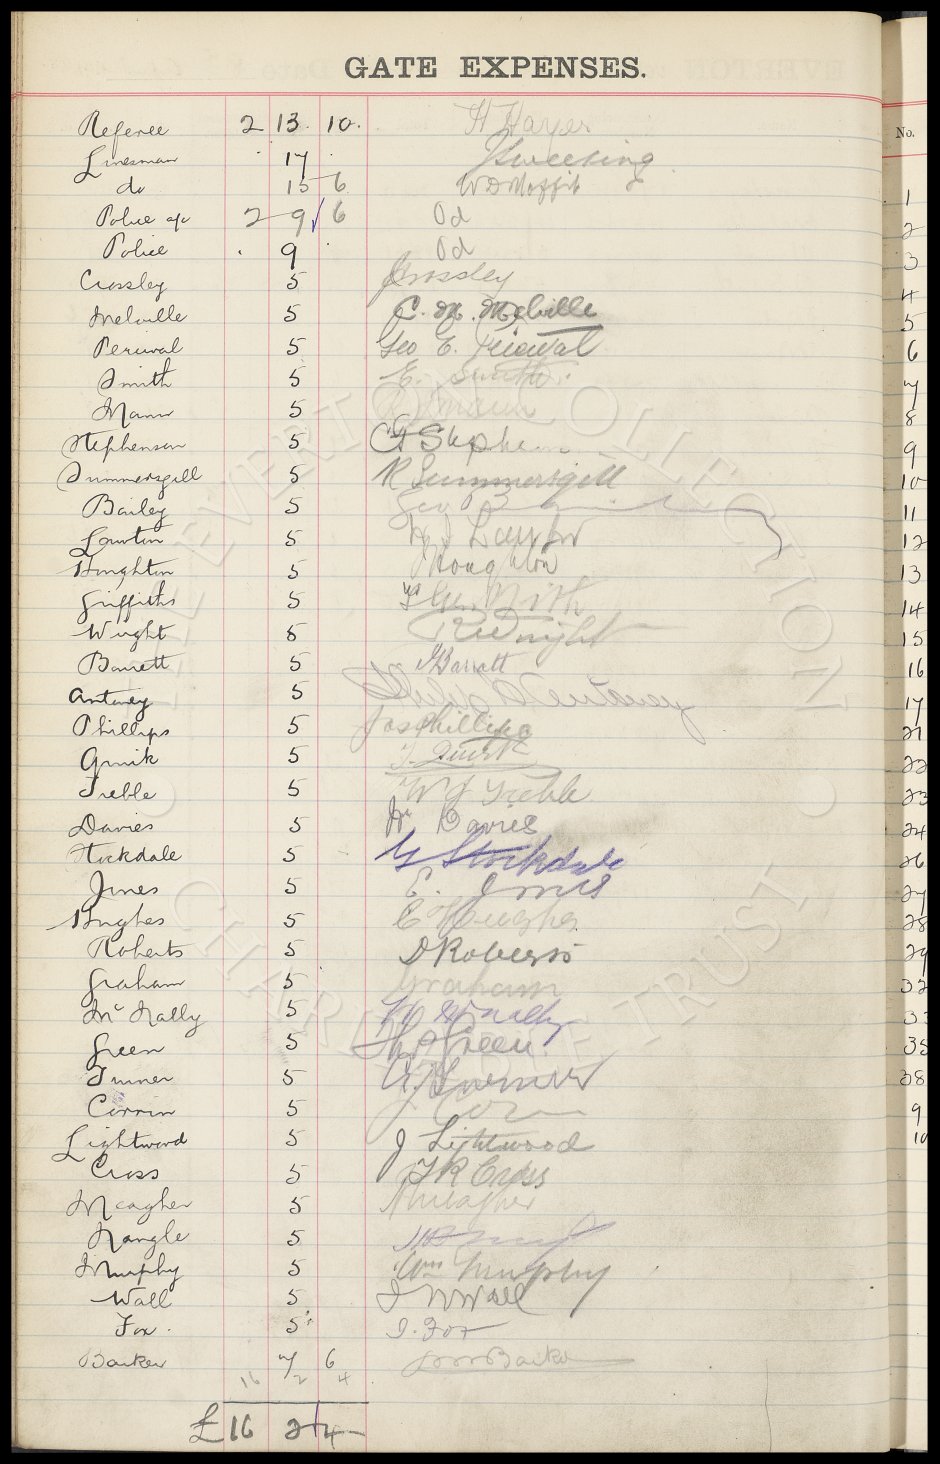 GATE EXPENSES.
Referee 2 13. 10. H Hayes
Linesman . 17 .
do 15 6 W D Moffit
Police a/c 2 9 6 Od
Police . 9 . Od
Crossley 5 J Crossley
Melville 5 C. M. Melville
Percival 5 Geo E. Percival
Smith 5 E. Smith.
Mann 5 Mann
Stephenson 5 Stephen
Summersgill 5 R Summersgill
Bailey 5 Geo
Lawton 5 Lawton
Houghton 5 Houghton
Griffiths 5
Wright 5 R Wright
Barrett 5 Barratt
Antwey 5
Phillips 5 Jas Phillips
Quirk 5 T. Quirk
Treble 5 W J Treble
Davies 5 Davies
Stockdale 5 Stockdale
Jones 5 E. Jones
Hughes 5 C Hughes
Roberts 5 D Roberts
Graham 5 Graham
Mc Nally 5
Green 5 Green
Turner 5
Corrin 5
Lightwood 5 J Lightwood
Cross 5 T R Cross
Meagher 5 Meagher
Nangle 5
Murphy 5 Wm Murphy
Wall 5 J W Wall
Fox. 5 J. Fox
Barker 7 6 Barker
16 2 4
£16 2 4
THE EVERTON COLLECTION
CHARITABLE TRUST
No.
1
2
3
4
5
6
7
8
9
10
11
12
13
14
15
16
17
21
22
23
24
26
27
28
29
32
33
35
38
9
10